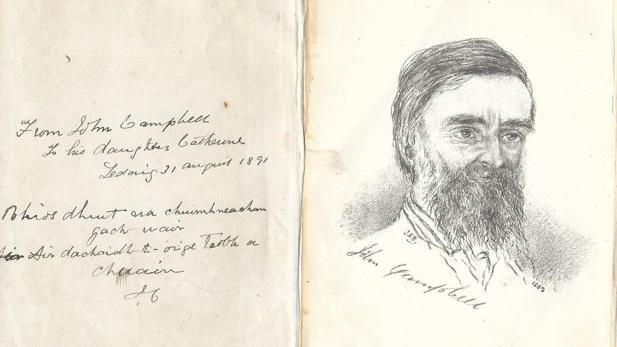 From John Campbell
to his daughter Catherine
Ledaig 31 august 1891
Bhios dhuut na chuimhneachan
gach uair
Air dachaidh t-oige Taobh a
chuain
JC
John Campbell
1883